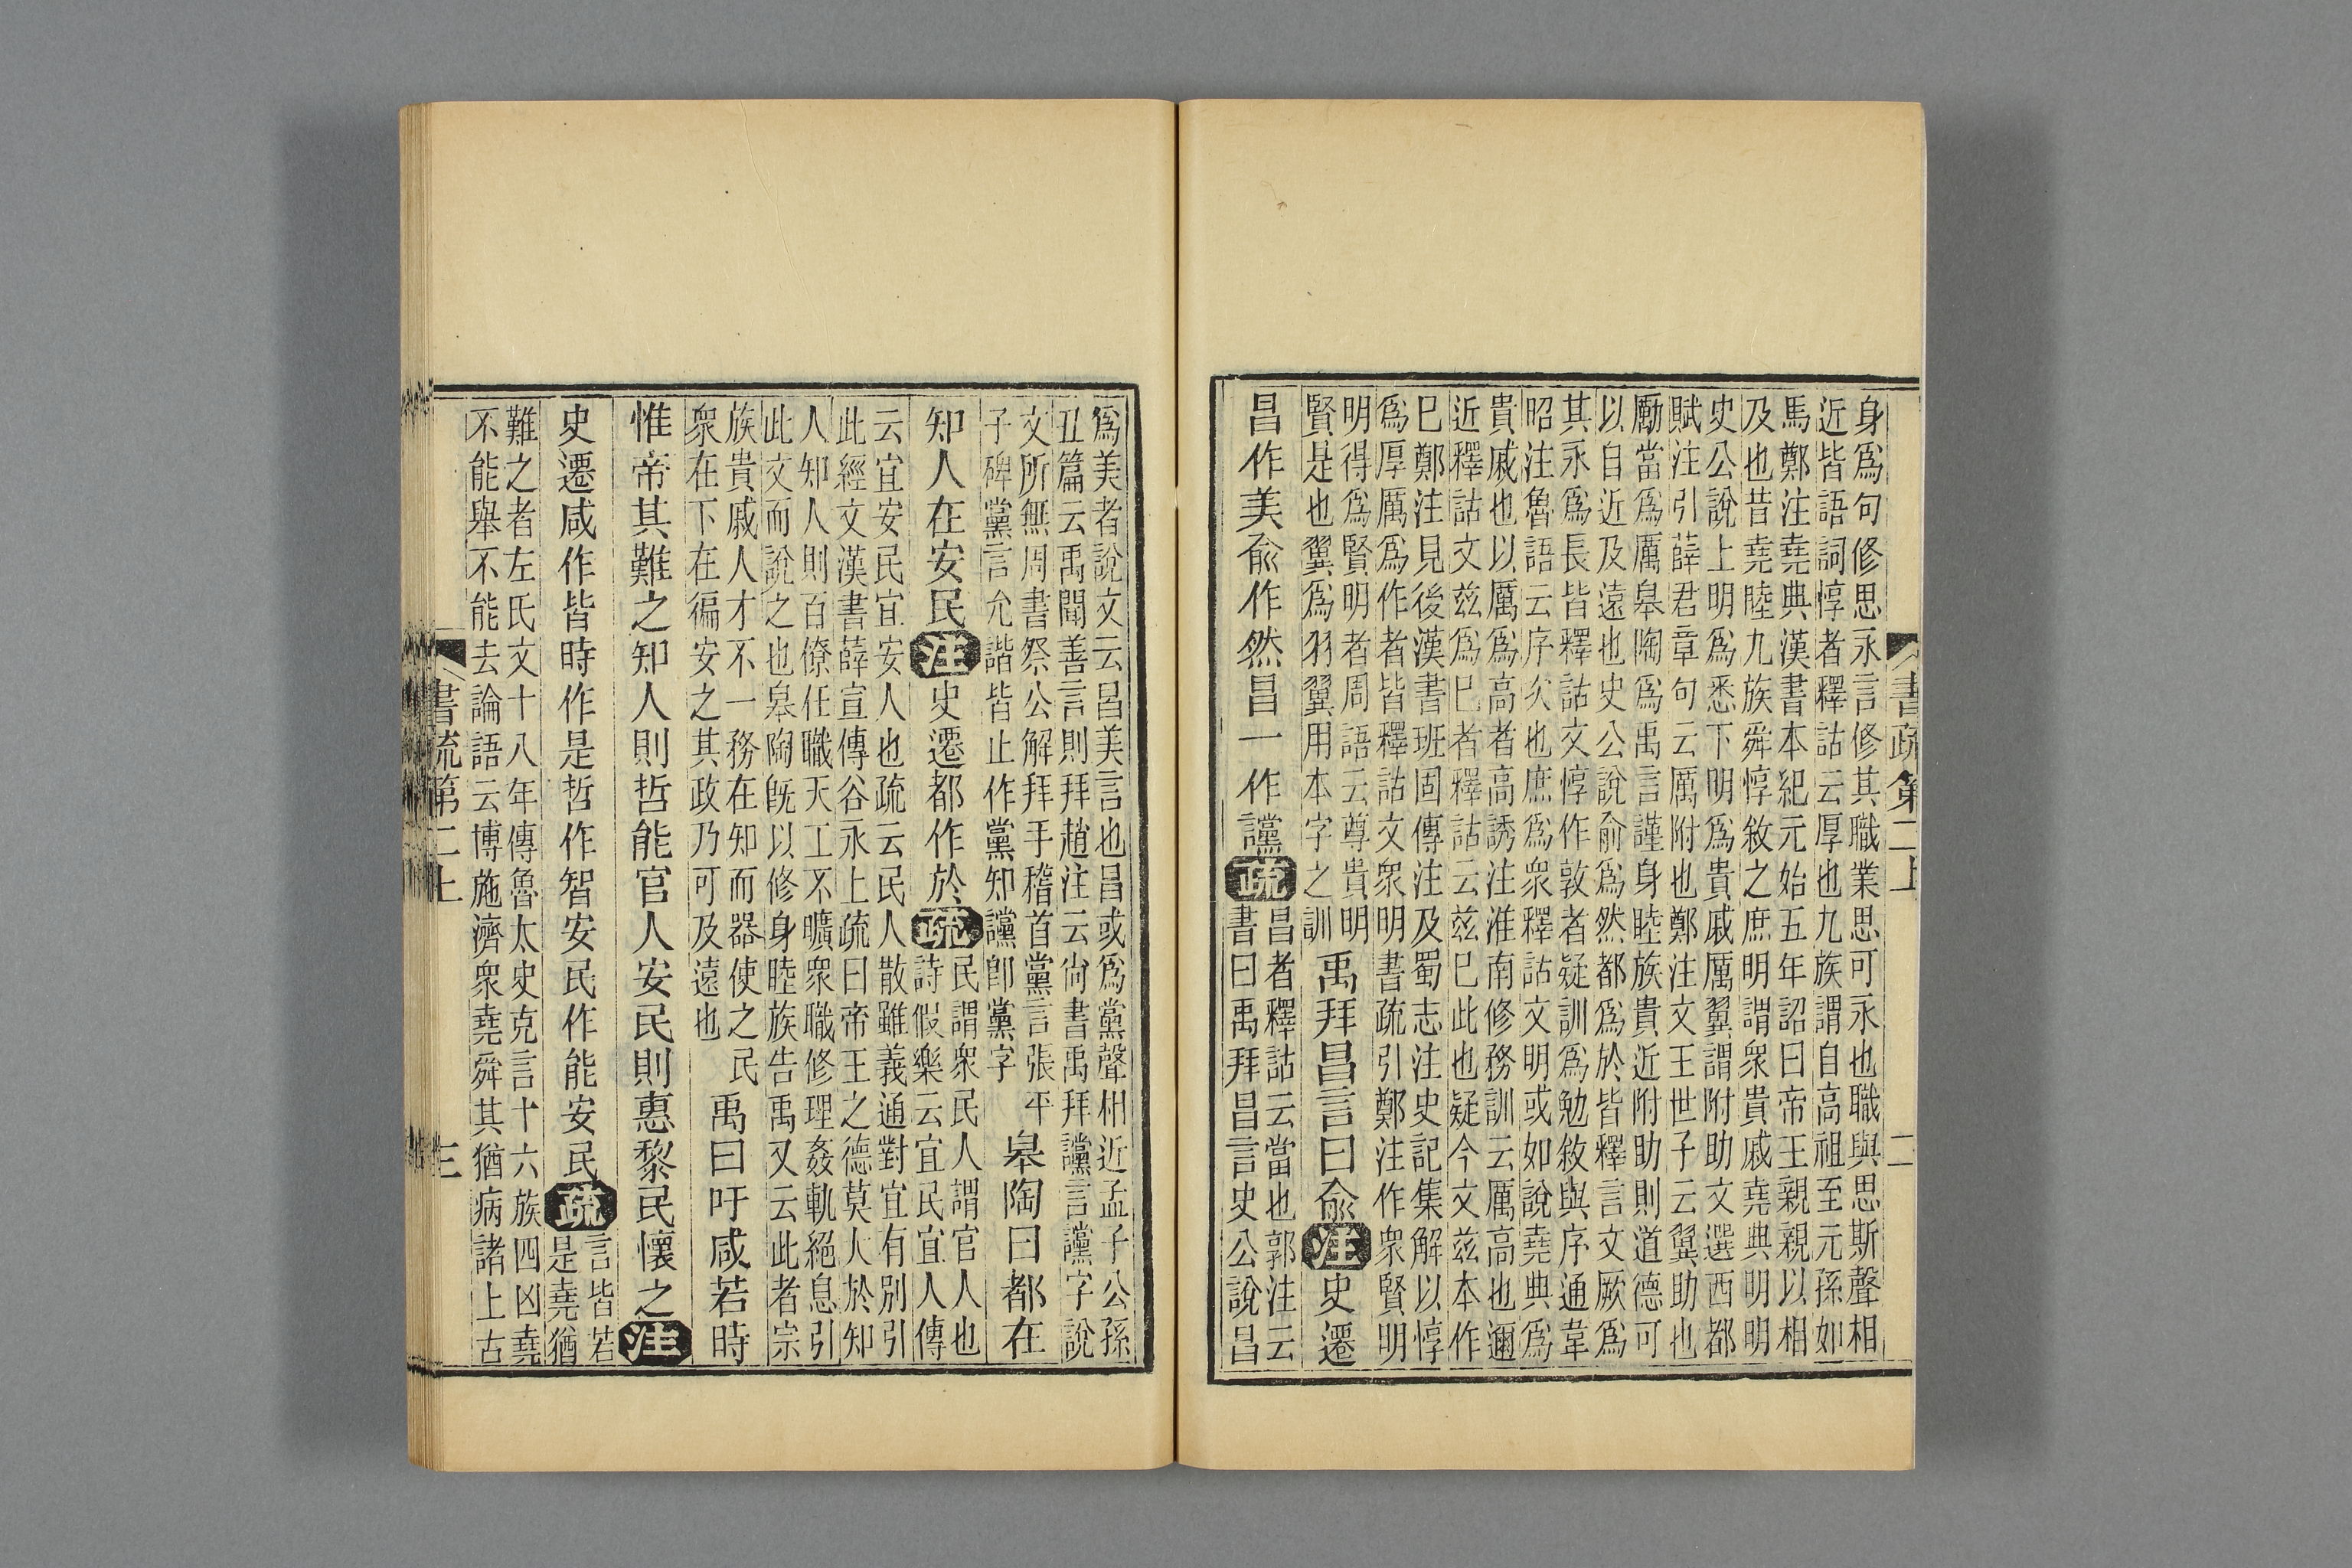 書疏第二上 二
身爲句修思永言修其職業思可永也職與思斯聲相
近皆語詞惇者釋詁云厚也九族謂自高祖至元孫如
馬鄭注堯典漢書本紀元始五年詔曰帝王親親以相
及也昔堯睦九族舜惇敘之庶明謂衆貴戚堯典明明
史公說上明爲悉下明爲貴戚厲翼謂附助文選西都
賦注引薛君章句云厲附也鄭注文王世子云翼助也
勵當爲厲皋陶爲禹言謹身睦族貴近附助則道德可
以自近及遠也史公說俞爲然都爲於皆釋言文厥爲
其永爲長皆釋詁文惇作敦者疑訓爲勉敘與序通韋
昭注魯語云序次也庶爲衆釋詁文明或如說堯典爲
貴戚也以厲爲高者高誘注淮南修務訓云厲高也邇
近釋詁文兹爲巳者釋詁云兹巳此也疑今文兹本作
巳鄭注見後漢書班固傳注及蜀志注史記集解以惇
爲厚厲爲作者皆釋詁文衆明書疏引鄭注作衆賢明
明得爲賢明者周語云尊貴明
賢是也翼爲羽翼用本字之訓
禹拜昌言曰俞注史遷
昌作美俞作然昌一作讜疏
昌者釋詁云當也郭注云
書曰禹拜昌言史公說昌
爲美者說文云昌美言也昌或爲黨聲相近孟子公孫
丑篇云禹聞善言則拜趙注云尚書禹拜讜言讜字說
文所無周書祭公解拜手稽首黨言張平
子碑黨言允諧皆止作黨知讜卽黨字
皋陶曰都在
知人在安民注史遷都作於疏
民謂衆民人謂官人也
詩假樂云宜民宜人傳
云宜安民宜安人也疏云民人散雖義通對宜有別引
此經文漢書薛宣傳谷永上疏曰帝王之德莫大於知
人知人則百僚任職天工不曠衆職修理姦軌絕息引
此文而說之也皋陶旣以修身睦族告禹又云此者宗
族貴戚人才不一務在知而器使之民
衆在下在徧安之其政乃可及遠也
禹曰吁咸若時
惟帝其難之知人則哲能官人安民則惠黎民懷之注
史遷咸作皆時作是哲作智安民作能安民疏
言皆若
是堯猶
難之者左氏文十八年傳魯太史克言十六族四凶堯
不能舉不能去論語云博施濟衆堯舜其猶病諸上古
書疏第二上 三